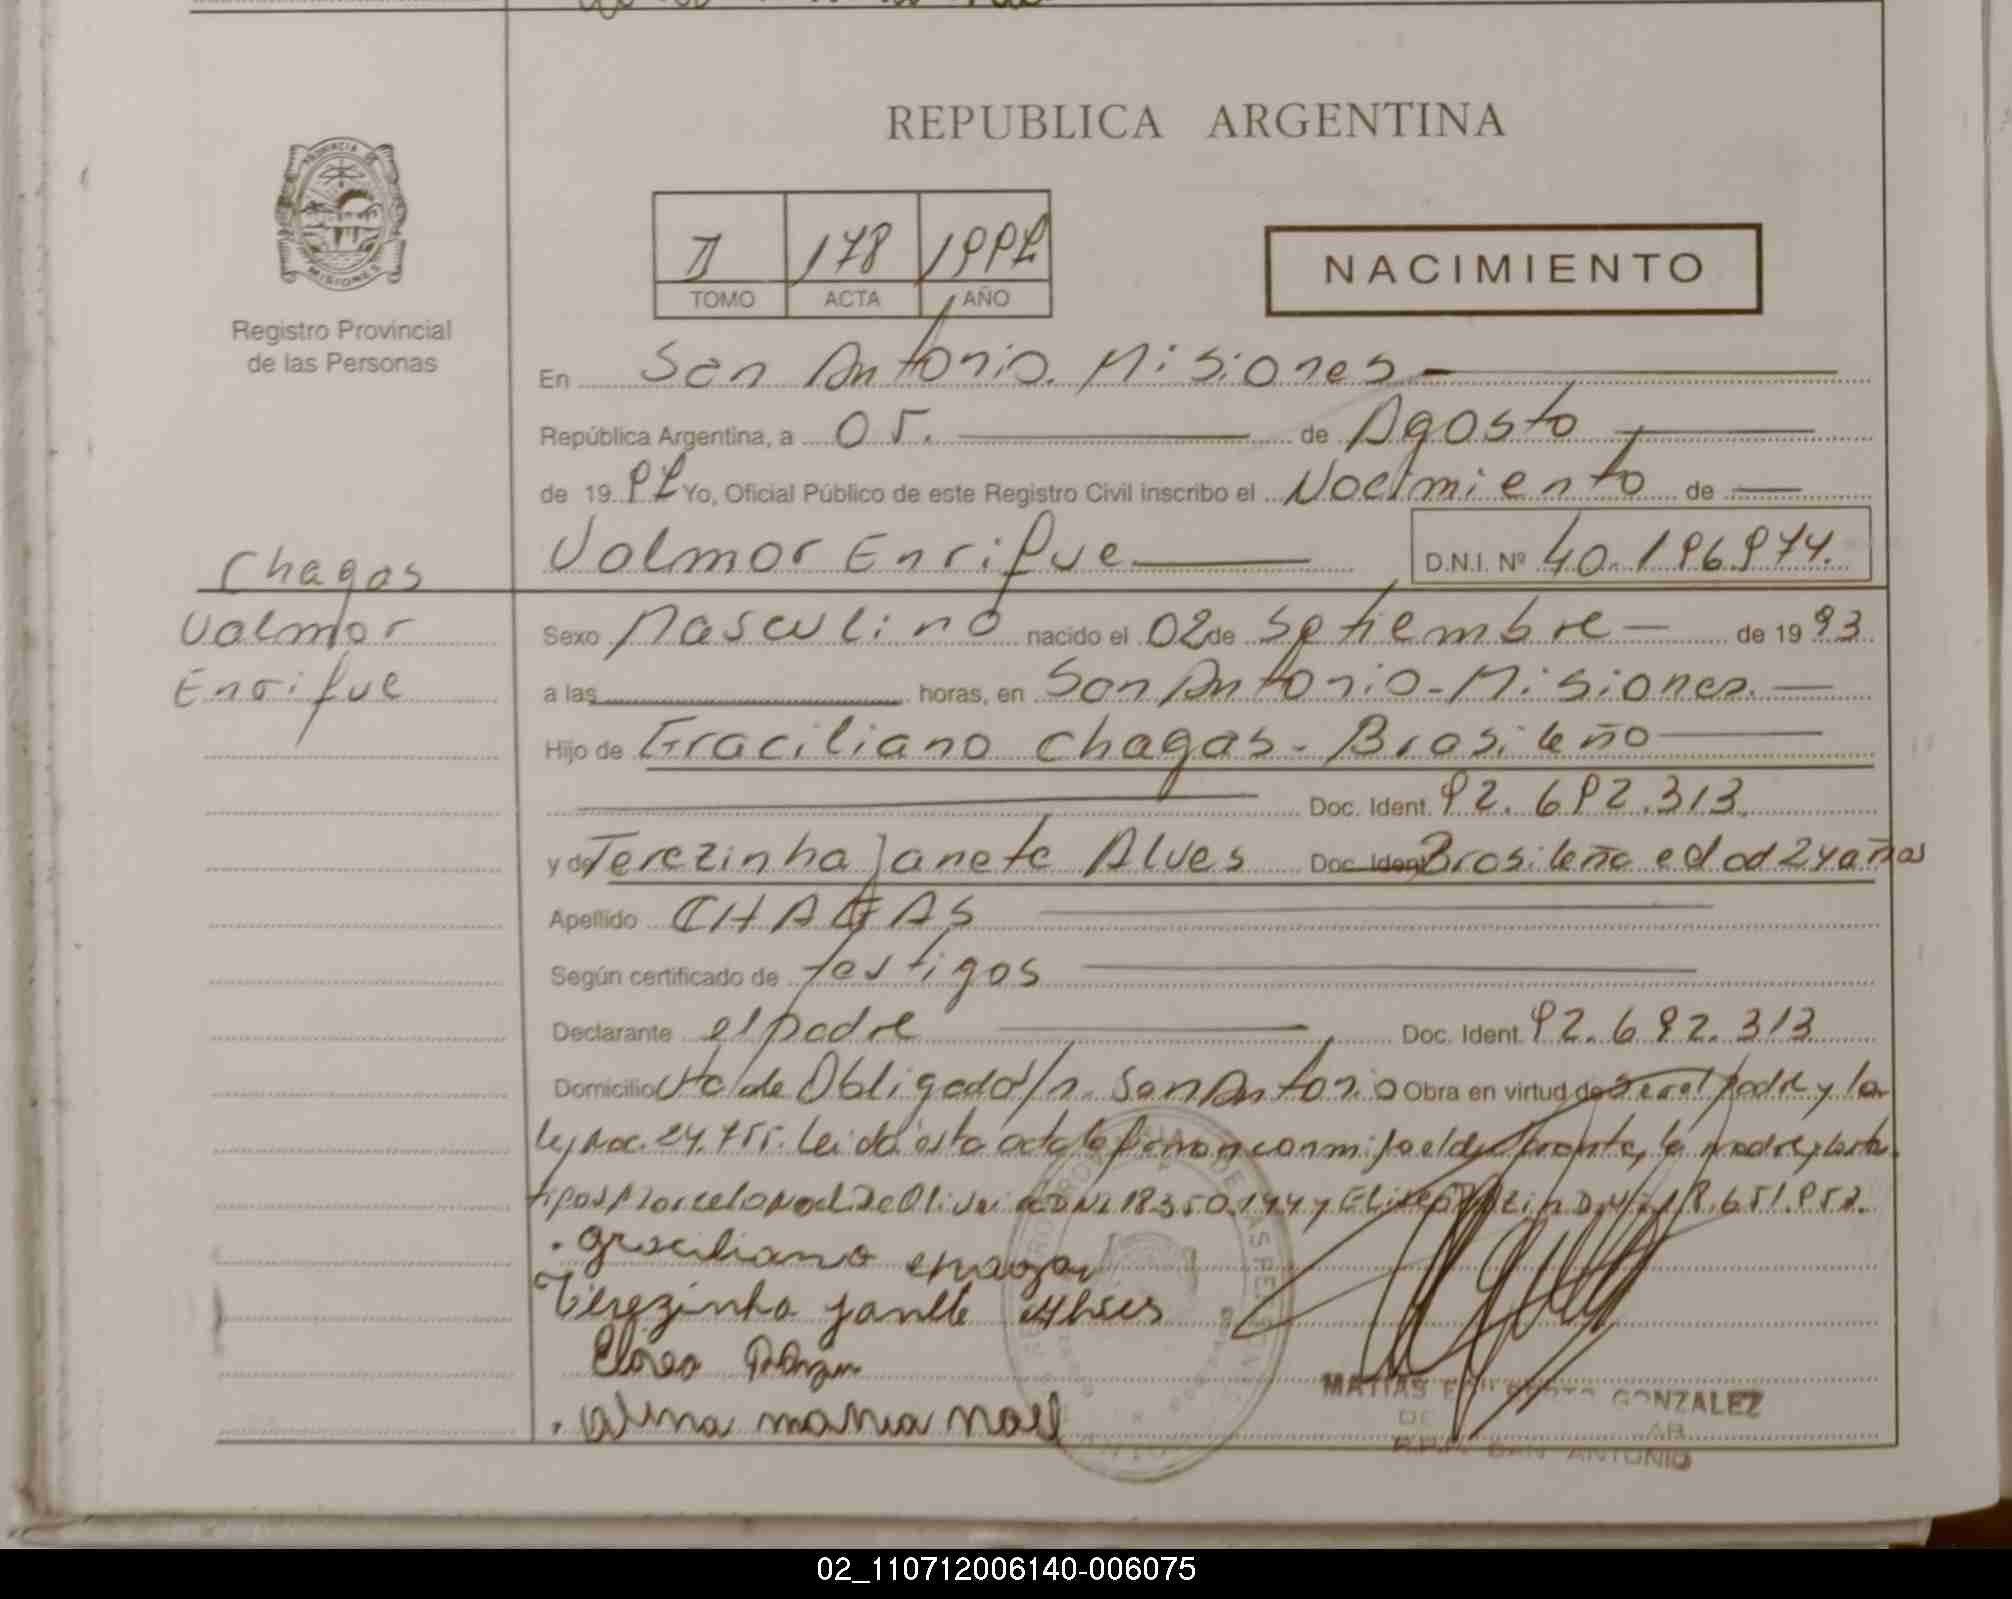 REPUBLICA ARGENTINA
PROVINCIA DE
MISIONES
Registro Provincial
de las Personas
II 178
TOMO ACTA AÑO
NACIMIENTO
En San Antonio. Misiones
República Argentina, a 05. de Agosto
de 19 Yo, Oficial Público de este Registro Civil inscribo el Nacimiento de
Valmor Enrique D.N.I. Nº 40.196.974.
Chagas
Valmor
Enrique
Sexo Masculino nacido el 02 de Septiembre de 19 93
a las horas, en San Antonio - Misiones.
Hijo de Graciliano Chagas - Brasileño
Doc. Ident. 92.692.313.
y de Terezinha Janete Alves Doc. Ident. Brasileña edad 24 años
Apellido CHAGAS
Según certificado de testigos
Declarante el padre Doc. Ident. 92.692.313
Domicilio Vta de Obligado s/n. San Antonio Obra en virtud de ser el padre y la
ley Nac. 24.755. Leida esta acta la firman conmigo el declarante, la madre y los tes
tigos Noel De Olivei DNI 18.350.144 y DNI 18.651.952.
. graciliano chagas
Terezinha Janete Alves
. maria noel
MATIAS GONZALEZ
R.P.P. SAN ANTONIO
02_110712006140-006075